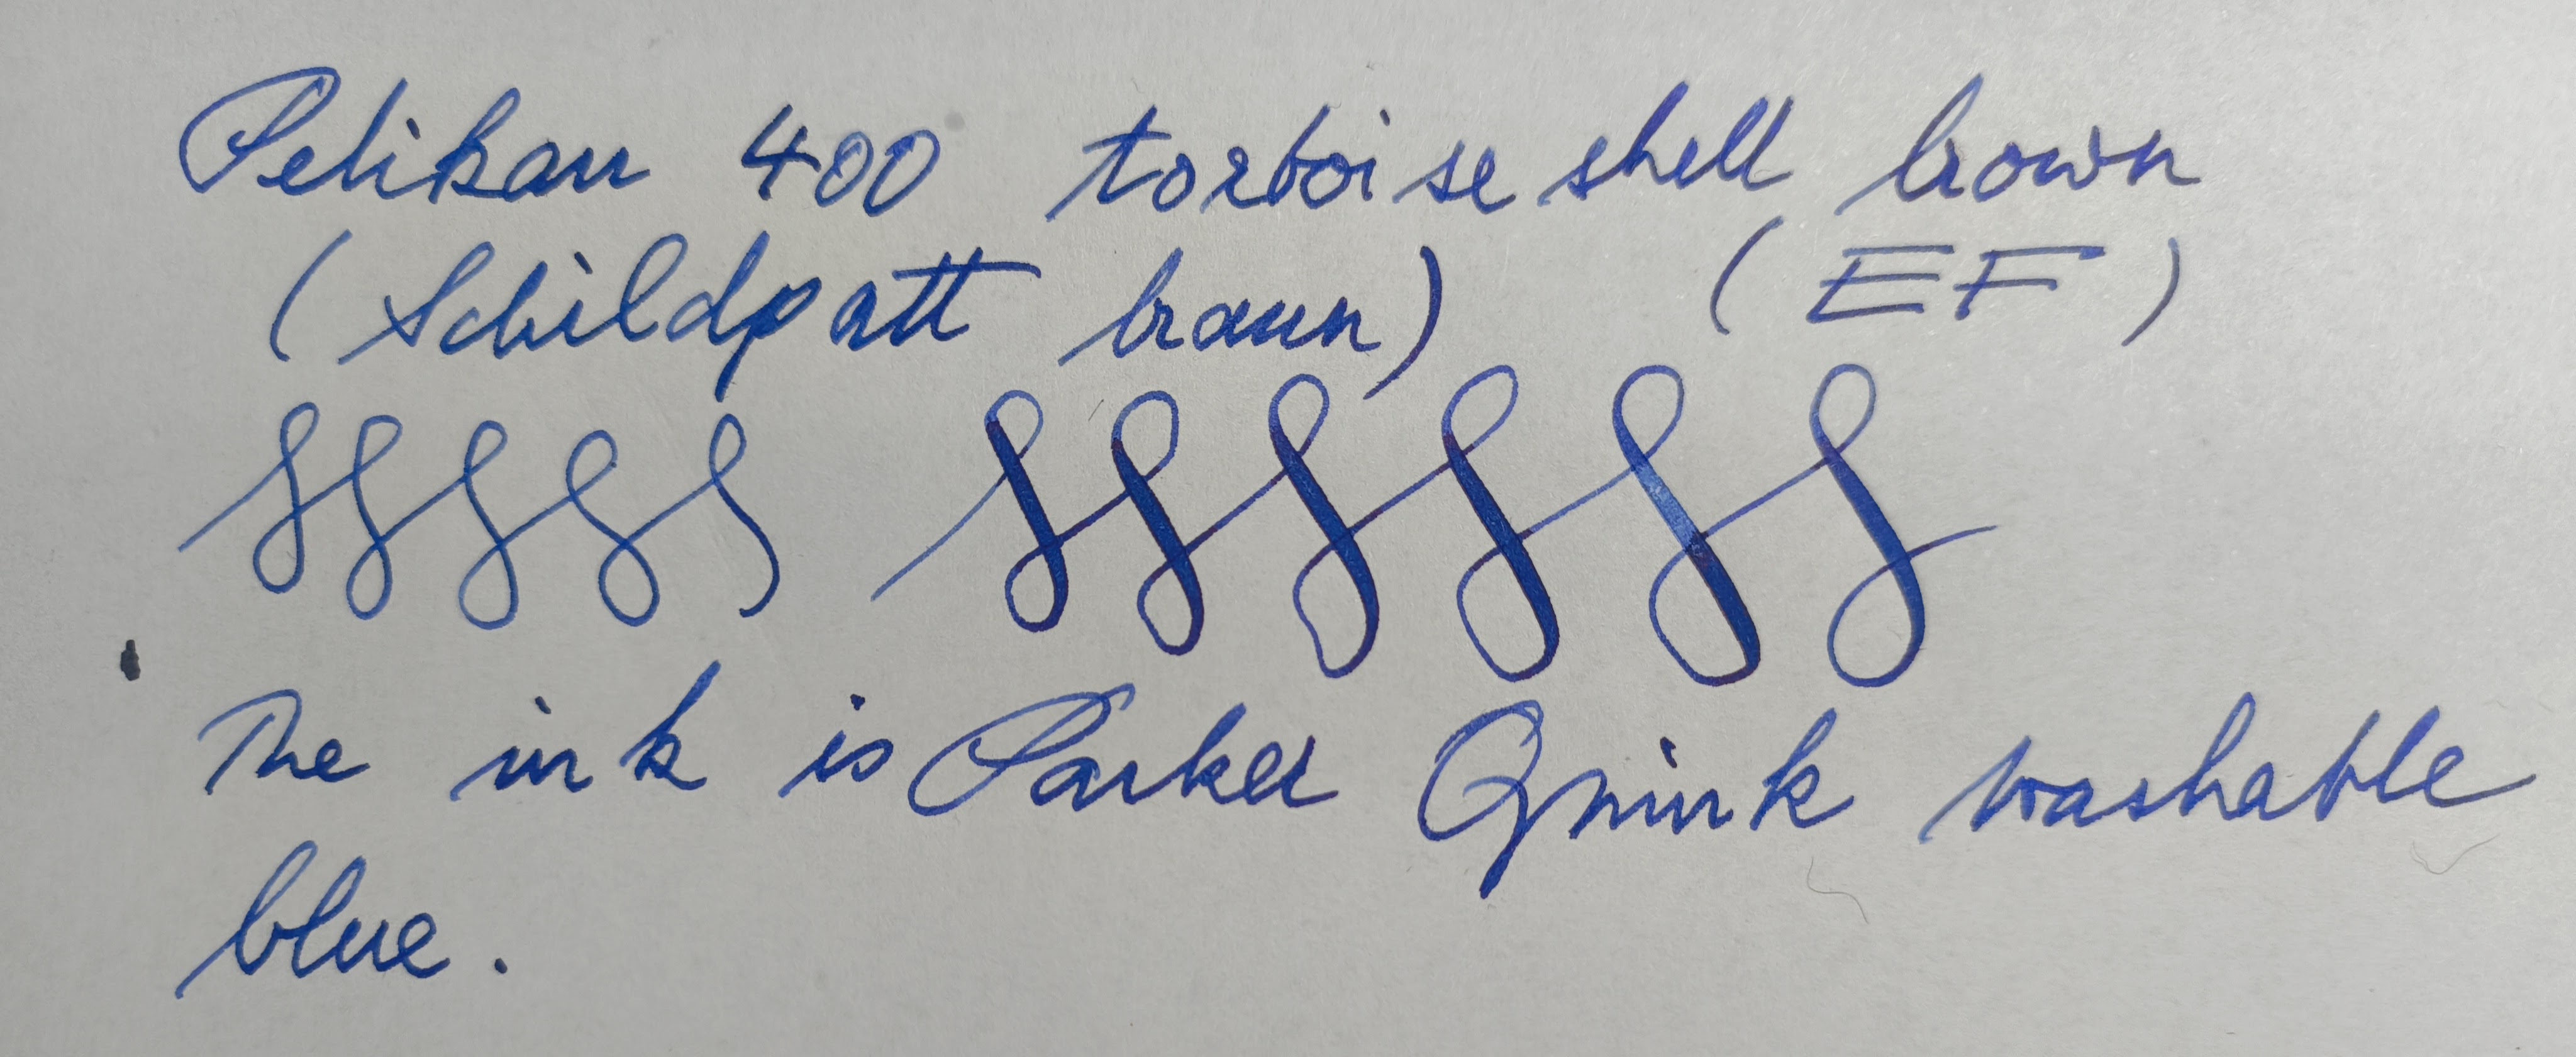 Pelikan 400 tortoise shell brown
(Schildpatt braun) (EF)
The ink is Parker Quink washable
blue.